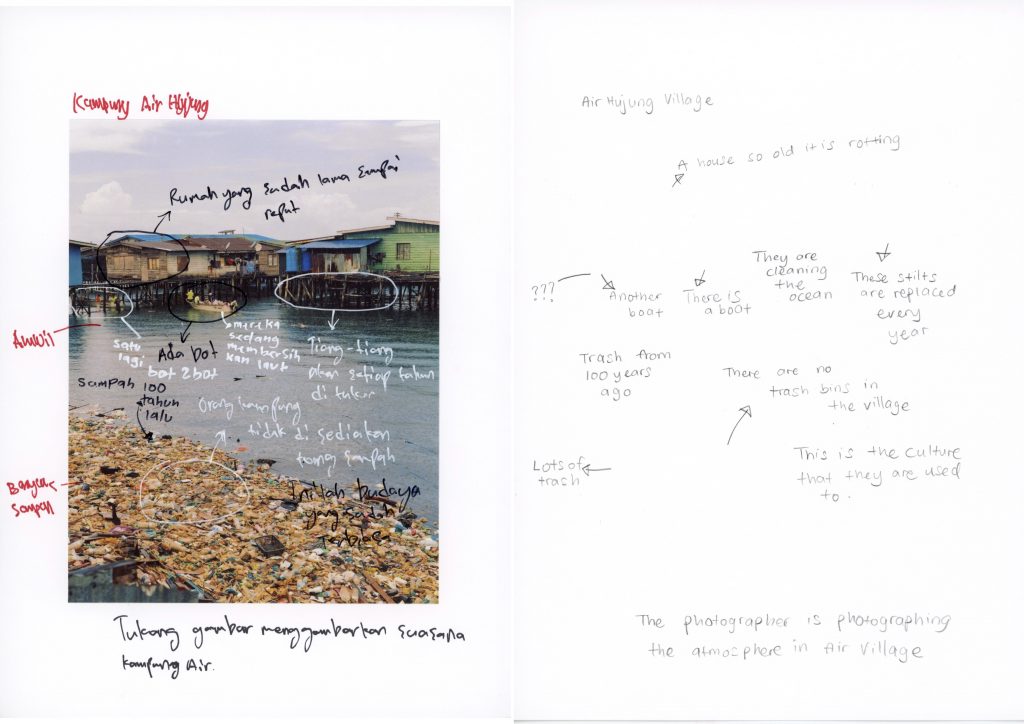 Kampung Air Hujung
Rumah yang sudah lama sampai
reput
satu
lagi
bot 2bot
Ada bot
mereka
sedang
membersih
kan laut
Tiang-tiang
akan setiap tahun
di tukar
Sampah 100
tahun
lalu
Orang kampung
tidak di sediakan
tong sampah
Banyak
sampah
Inilah budaya
yang sudah
terbiasa
Tukang gambar menggambarkan suasana
kampung Air.
Air Hujung Village
A house so old it is rotting
???
Another
boat
There is
a boat
They are
cleaning
the
ocean
These stilts
are replaced
every
year
Trash from
100 years
ago
There are no
trash bins in
the village
Lots of
trash
This is the culture
that they are used
to.
The photographer is photographing
the atmosphere in Air Village